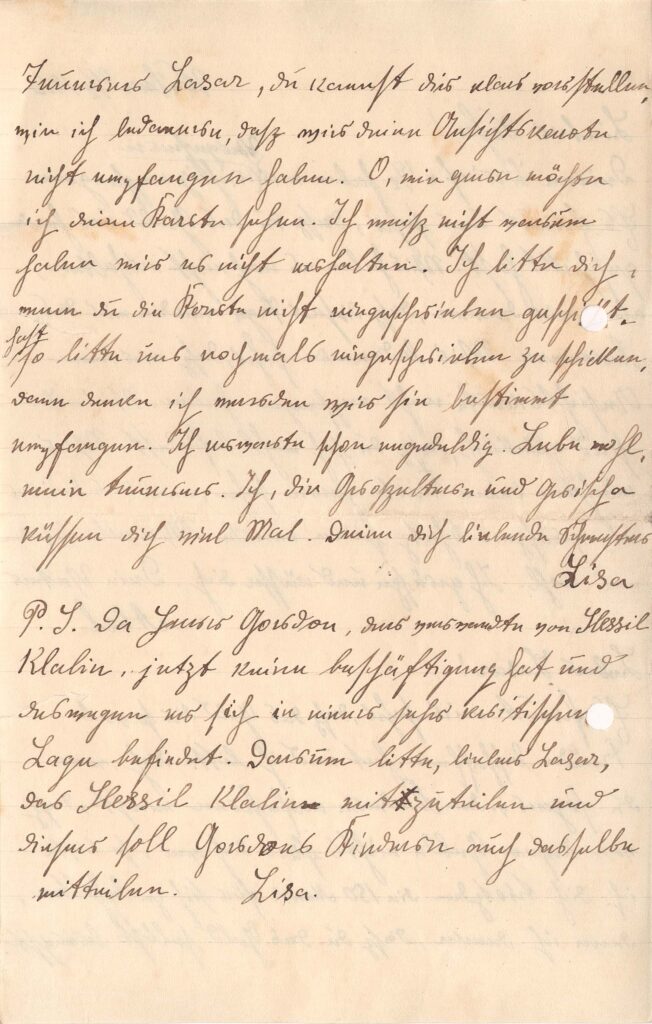 Teuerer Lasar, du kannst dir klar vorstellen,
wie ich bedauere, daß wir deine Ansichtskarte
nicht empfangen haben. O, wie gern möchte
ich deine Karte sehen. Ich weiß nicht warum
haben wir es nicht erhalten. Ich bitte dich,
wenn du die Karte nicht eingeschrieben geschickt
hast
so bitte uns nochmals eingeschrieben zu schicken,
dann denke ich werden wir sie bestimmt
empfangen. Ich erwarte schon ungeduldig. Lebe wohl,
mein teuerer. Ich, die Grosseltern und Grischa
küssen dich viel Mal. Deine dich liebende Schwester
Lisa
P. S. Da Herr Gordon, der verwandte von Slessil
Klabin, jetzt keine beschäftigung hat und
deswegen er sich in einer sehr kritischen
Lage befindet. Darum bitte, lieber Lasar,
das Slessil Klabin mitzuteilen und
dieser soll Gordons Kindern auch dasselbe
mitteilen. Lisa.